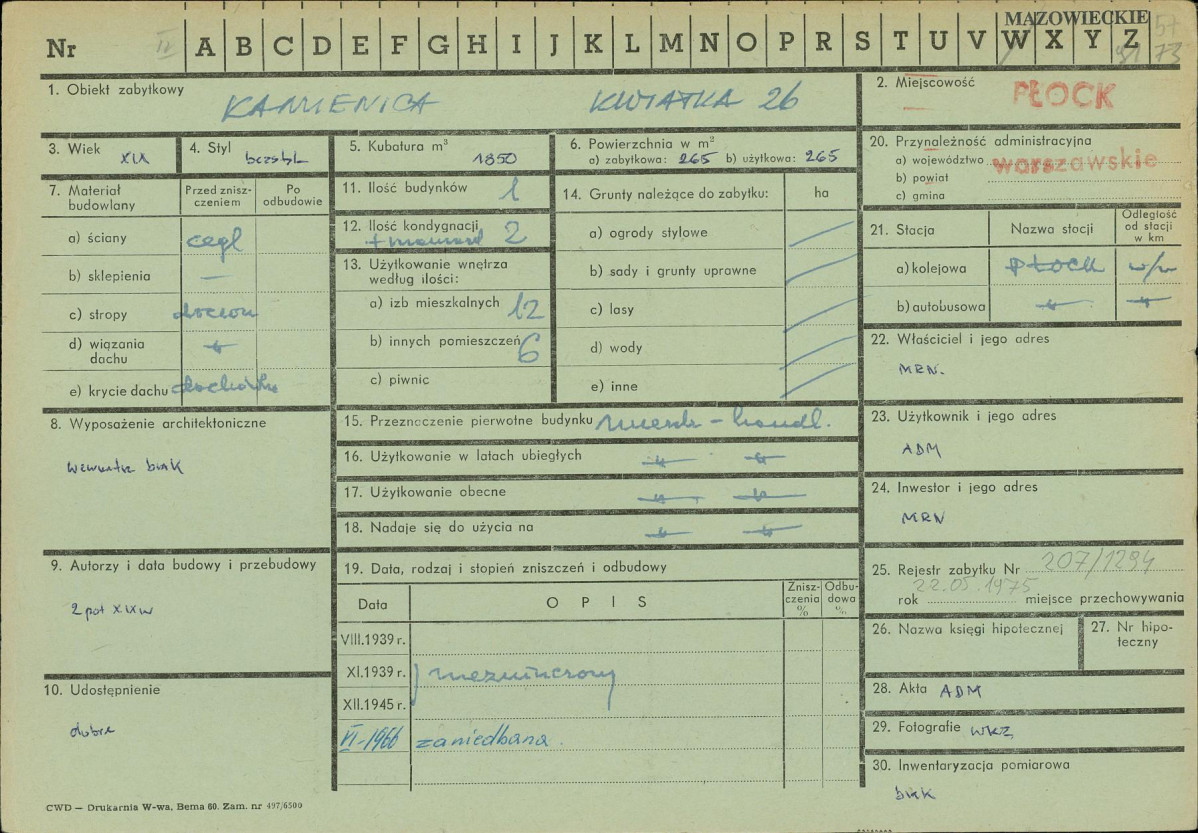 MAZOWIECKIE
Nr A B C D E F G H I J K L M N O P R S T U V W X Y Z
1. Obiekt zabytkowy KAMIENICA KWIATKA 26
2. Miejscowość PŁOCK
3. Wiek XIX
4. Styl bezstyl.
5. Kubatura m³ 1850
6. Powierzchnia w m²
a) zabytkowa: 265 b) użytkowa: 265
20. Przynależność administracyjna
a) województwo warszawskie
b) powiat
c) gmina
7. Materiał budowlany
Przed znisz-
czeniem
Po
odbudowie
a) ściany cegl
b) sklepienia —
c) stropy
d) wiązania
dachu
e) krycie dachu dachówka
11. Ilość budynków 1
12. Ilość kondygnacji 2
13. Użytkowanie wnętrza
według ilości:
a) izb mieszkalnych 12
b) innych pomieszczeń 6
c) piwnic
14. Grunty należące do zabytku: ha
a) ogrody stylowe
b) sady i grunty uprawne
c) lasy
d) wody
e) inne
21. Stacja Nazwa stacji
Odległość
od stacji
w km
a) kolejowa PŁOCK
b) autobusowa
22. Właściciel i jego adres
MRN.
8. Wyposażenie architektoniczne
wewnątrz brak
15. Przeznaczenie pierwotne budynku mieszk - handl.
16. Użytkowanie w latach ubiegłych
17. Użytkowanie obecne
18. Nadaje się do użycia na
23. Użytkownik i jego adres
ADM
24. Inwestor i jego adres
MRN
9. Autorzy i data budowy i przebudowy
2 poł XIX w
19. Data, rodzaj i stopień zniszczeń i odbudowy
Data OPIS
Znisz-
czenia
%
Odbu-
dowa
%
VIII.1939 r.
XI.1939 r. niezniszczony
XII.1945 r.
VI-1966 zaniedbana.
25. Rejestr zabytku Nr 207/1294
22.05.1975
rok miejsce przechowywania
26. Nazwa księgi hipotecznej
27. Nr hipo-
teczny
10. Udostępnienie
dobre
28. Akta ADM
29. Fotografie WKZ
30. Inwentaryzacja pomiarowa
brak
CWD — Drukarnia W-wa, Bema 60. Zam. nr 497/6500